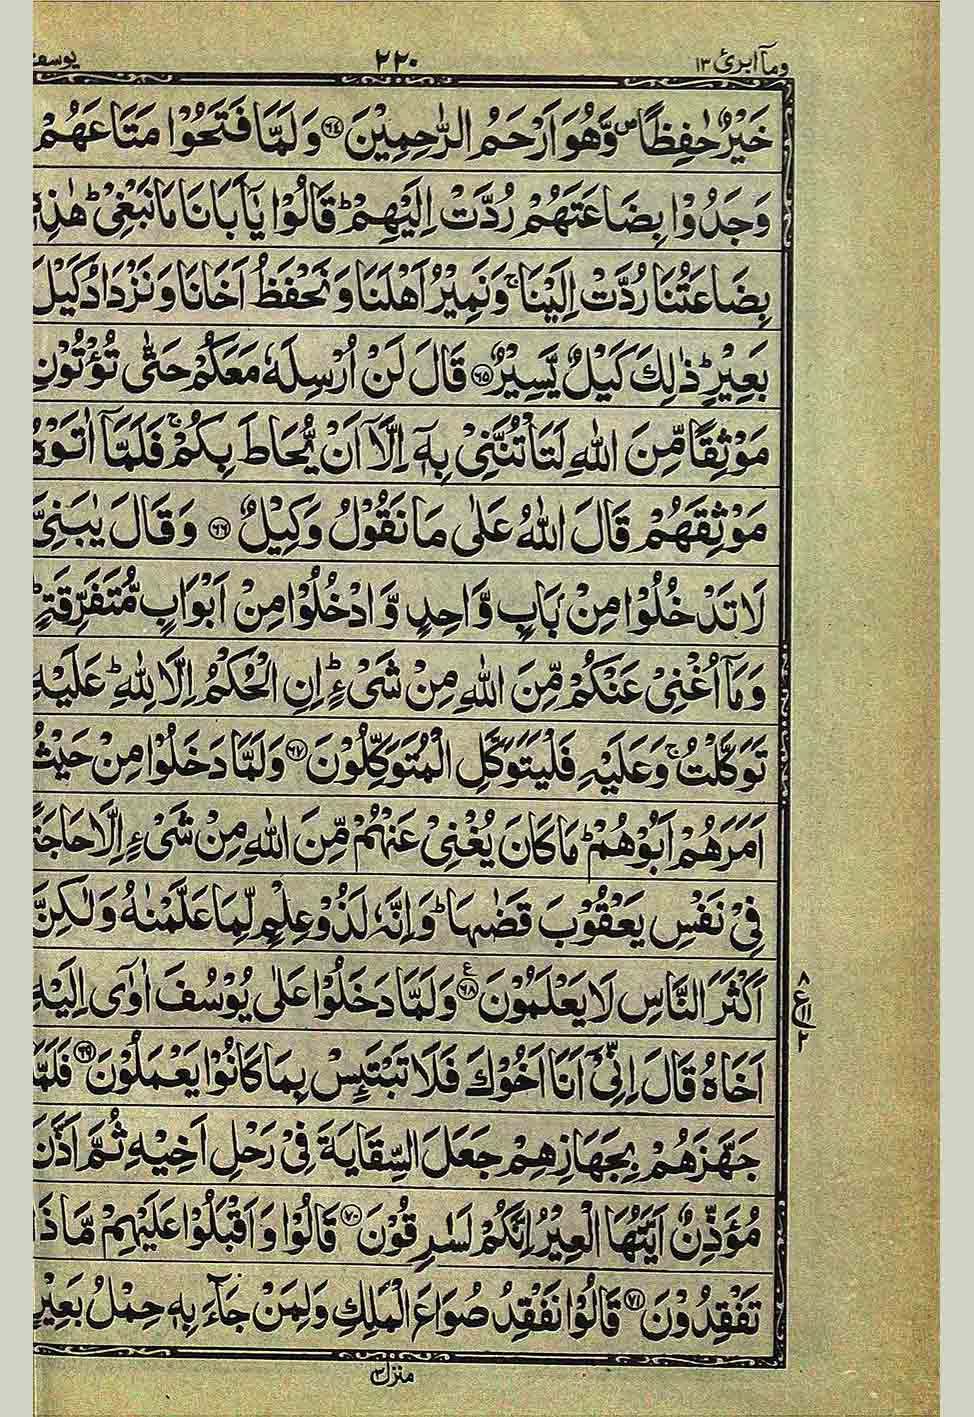 وما ابرئ ١٣
٢٢٠
يوسف
خَيْرٌ حٰفِظًا ۪ وَّهُوَ اَرْحَمُ الرّٰحِمِيْنَ ﴿٦٤﴾ وَلَمَّا فَتَحُوْا مَتَاعَهُمْ
وَجَدُوْا بِضَاعَتَهُمْ رُدَّتْ اِلَيْهِمْ ؕ قَالُوْا يٰۤاَبَانَا مَا نَبْغِيْ ؕ هٰذِهٖ
بِضَاعَتُنَا رُدَّتْ اِلَيْنَا ۚ وَنَمِيْرُ اَهْلَنَا وَنَحْفَظُ اَخَانَا وَنَزْدَادُ كَيْلَ
بَعِيْرٍ ؕ ذٰلِكَ كَيْلٌ يَّسِيْرٌ ﴿٦٥﴾ قَالَ لَنْ اُرْسِلَهٗ مَعَكُمْ حَتّٰى تُؤْتُوْنِ
مَوْثِقًا مِّنَ اللّٰهِ لَتَاْتُنَّنِيْ بِهٖۤ اِلَّاۤ اَنْ يُّحَاطَ بِكُمْ ۚ فَلَمَّاۤ اٰتَوْهُ
مَوْثِقَهُمْ قَالَ اللّٰهُ عَلٰى مَا نَقُوْلُ وَكِيْلٌ ﴿٦٦﴾ وَقَالَ يٰبَنِيَّ
لَا تَدْخُلُوْا مِنْۢ بَابٍ وَّاحِدٍ وَّادْخُلُوْا مِنْ اَبْوَابٍ مُّتَفَرِّقَةٍ ؕ
وَمَاۤ اُغْنِيْ عَنْكُمْ مِّنَ اللّٰهِ مِنْ شَيْءٍ ؕ اِنِ الْحُكْمُ اِلَّا لِلّٰهِ ؕ عَلَيْهِ
تَوَكَّلْتُ ۚ وَعَلَيْهِ فَلْيَتَوَكَّلِ الْمُتَوَكِّلُوْنَ ﴿٦٧﴾ وَلَمَّا دَخَلُوْا مِنْ حَيْثُ
اَمَرَهُمْ اَبُوْهُمْ ؕ مَا كَانَ يُغْنِيْ عَنْهُمْ مِّنَ اللّٰهِ مِنْ شَيْءٍ اِلَّا حَاجَةً
فِيْ نَفْسِ يَعْقُوْبَ قَضٰىهَا ؕ وَاِنَّهٗ لَذُوْ عِلْمٍ لِّمَا عَلَّمْنٰهُ وَلٰكِنَّ
اَكْثَرَ النَّاسِ لَا يَعْلَمُوْنَ ﴿٦٨﴾ ع وَلَمَّا دَخَلُوْا عَلٰى يُوْسُفَ اٰوٰۤى اِلَيْهِ
٨
ع ١١
٢
اَخَاهُ قَالَ اِنِّيْۤ اَنَا اَخُوْكَ فَلَا تَبْتَىِٕسْ بِمَا كَانُوْا يَعْمَلُوْنَ ﴿٦٩﴾ فَلَمَّا
جَهَّزَهُمْ بِجَهَازِهِمْ جَعَلَ السِّقَايَةَ فِيْ رَحْلِ اَخِيْهِ ثُمَّ اَذَّنَ
مُؤَذِّنٌ اَيَّتُهَا الْعِيْرُ اِنَّكُمْ لَسٰرِقُوْنَ ﴿٧٠﴾ قَالُوْا وَاَقْبَلُوْا عَلَيْهِمْ مَّا ذَا
تَفْقِدُوْنَ ﴿٧١﴾ قَالُوْا نَفْقِدُ صُوَاعَ الْمَلِكِ وَلِمَنْ جَآءَ بِهٖ حِمْلُ بَعِيْرٍ
منزل ٣